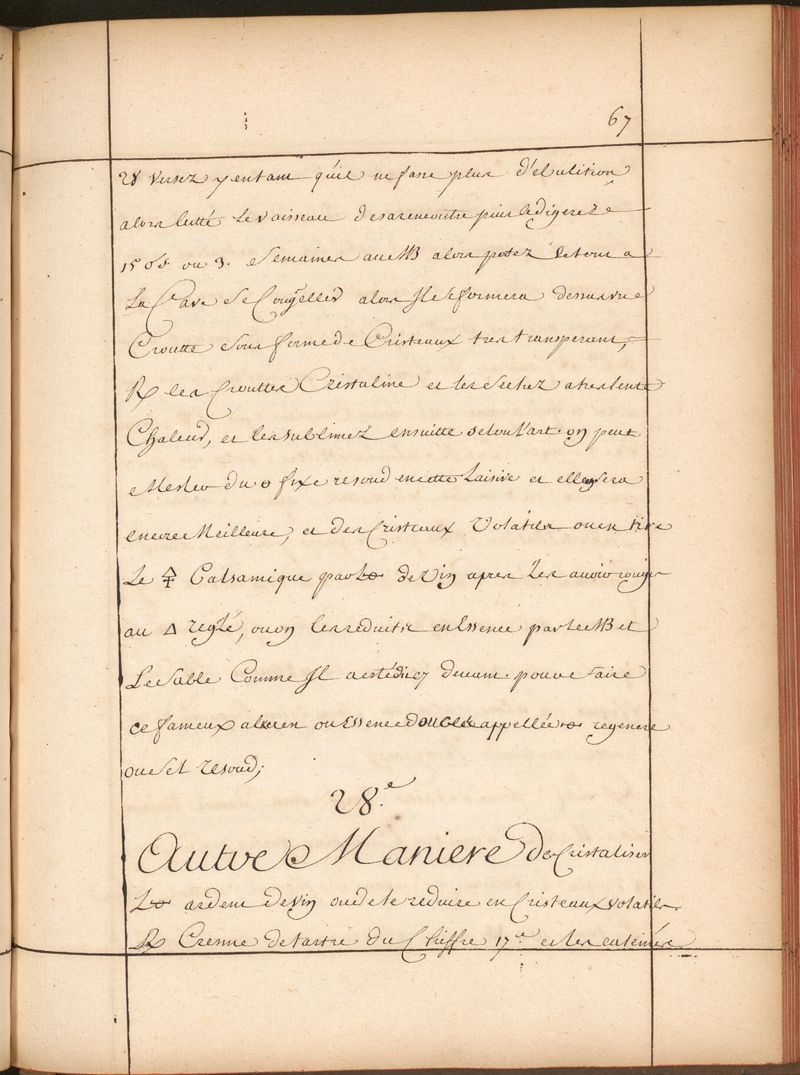 67
28 versez y en tant qu'il ne fasse plus d'ebulition
alors lutté le vaisseau de sa rencontre puis le digerez
15 ou 3. Semaines au MB alors posez le tout a
La Cave se Congeller alors Il se formera dessus une
Croutte sous forme de Cristeaux tres transparant,
R les Crouttes Cristaline et les sechez a tres lente
Chaleur, et les sublimez ensuitte selon l'art. on peut
Mesler du fixe resoud en cette Laisive et elle sera
encore Meilleure, et des Cristeaux Volatils on en tire
Le 🜍 Balsamique par de Vin apres les avoir rougir
au △ reglé, ou on les reduit en Essence par le MB et
Le Sable Comme Il a esté dit cy devant pour faire
ce fameux ou Essence double appellée regeneré
ou Sel resoud;
28.e
Autre Maniere de Cristaliser
ardent de Vin ou de le reduire en Cristeaux volatils.
R Cremme de tartre du Chiffre 17.e et les calcinere